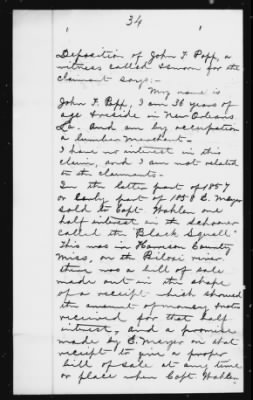 34
Deposition of John F. Popp, a
witness called & sworn for the
claimant says:-
My name is
John F. Popp, I am 36 years of
age & reside in New Orleans
La. and am by occupation
a lumber merchant.
I have no interest in this
claim, and I am not related
to the claimants.
In the latter part of 1857
or early part of 1858 E. Meyer
sold to Capt. Wahlen one
half interest in the schooner
called the "Black Squall"
This was in Harrison County
Miss, on the Biloxi river
there was a bill of sale
made out in the shape
of a receipt which showed
the amount of money
received for that half
interest, and a promise
made by E. Meyer in that
receipt to give a proper
bill of sale at any time
or place when Capt. Wahlen